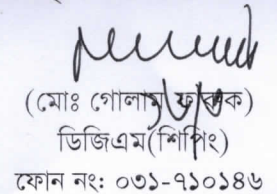 (মোঃ গোলাম ফারুক)
ডিজিএম(শিপিং)
ফোন নং: ০৩১-৭১০১৪৬